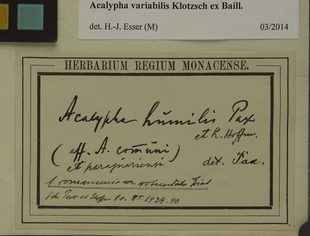 Acalypha variabilis Klotzsch ex Baill.
det. H.-J. Esser (M)
03/2014
HERBARIUM REGIUM MONACENSE.
Acalypha humilis Pax
et K. Hoffm.
(aff. A. comuni)
et paraguariensi
det. Pax.
A communis var.
Pax et Hoffm. 1924